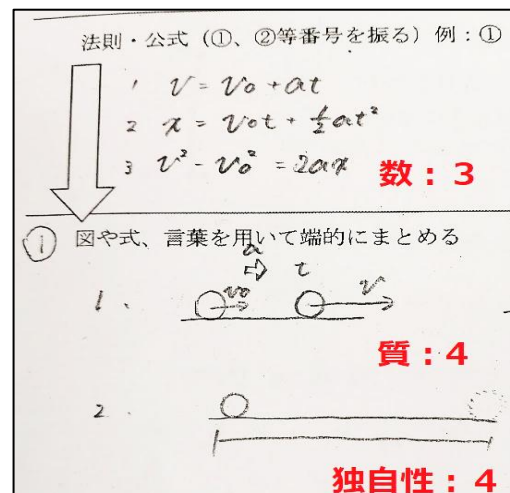 法則・公式（①、②等番号を振る）例：①
1 v = v₀ + at
2 x = v₀t + ½at²
3 v² - v₀² = 2ax
数：3
① 図や式、言葉を用いて端的にまとめる
a
v₀ t v
1、
質：4
2、
独自性：4